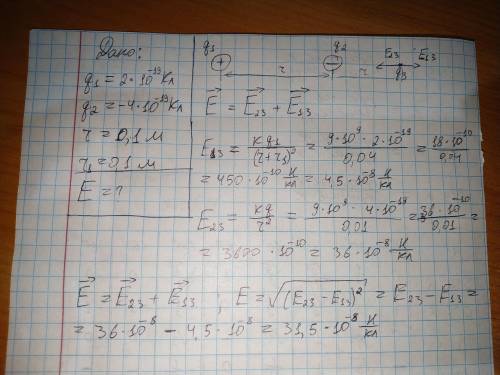 Дано:
q1 = 2·10⁻¹⁹ Кл
q2 = -4·10⁻¹⁹ Кл
r = 0,1 м
r1 = 0,1 м
E = ?
q1 q2 E23 E13
+ − q3
r r
E⃗ = E⃗23 + E⃗13
E13 = kq1/(r+r1)² = 9·10⁹·2·10⁻¹⁹/0,04 = 18·10⁻¹⁰/0,04
= 450·10⁻¹⁰ Н/Кл = 4,5·10⁻⁸ Н/Кл
E23 = kq/r² = 9·10⁹·4·10⁻¹⁹/0,01 = 36·10⁻¹⁰/0,01 =
= 3600·10⁻¹⁰ = 36·10⁻⁸ Н/Кл
E⃗ = E⃗23 + E⃗13 ; E = √(E23 − E13)² = E23 − E13 =
= 36·10⁻⁸ − 4,5·10⁻⁸ = 31,5·10⁻⁸ Н/Кл